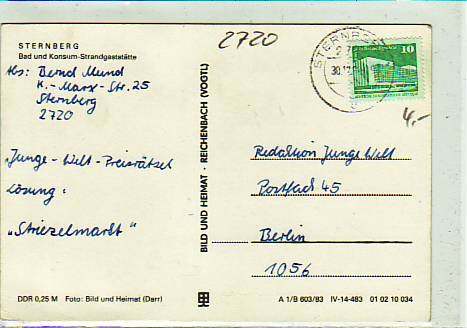 2720
STERNBERG
Bad und Konsum-Strandgaststätte
Abs: Bernd Mund
K.-Marx-Str. 25
Sternberg
2720
Junge-Welt-Preisrätsel
Lösung:
"Striezelmarkt"
BILD UND HEIMAT · REICHENBACH (VOGTL)
10
4,-
Redaktion Junge Welt
Postfach 45
Berlin
1056
DDR 0,25 M Foto: Bild und Heimat (Darr)
A 1/B 603/83 IV-14-483 01 02 10 034